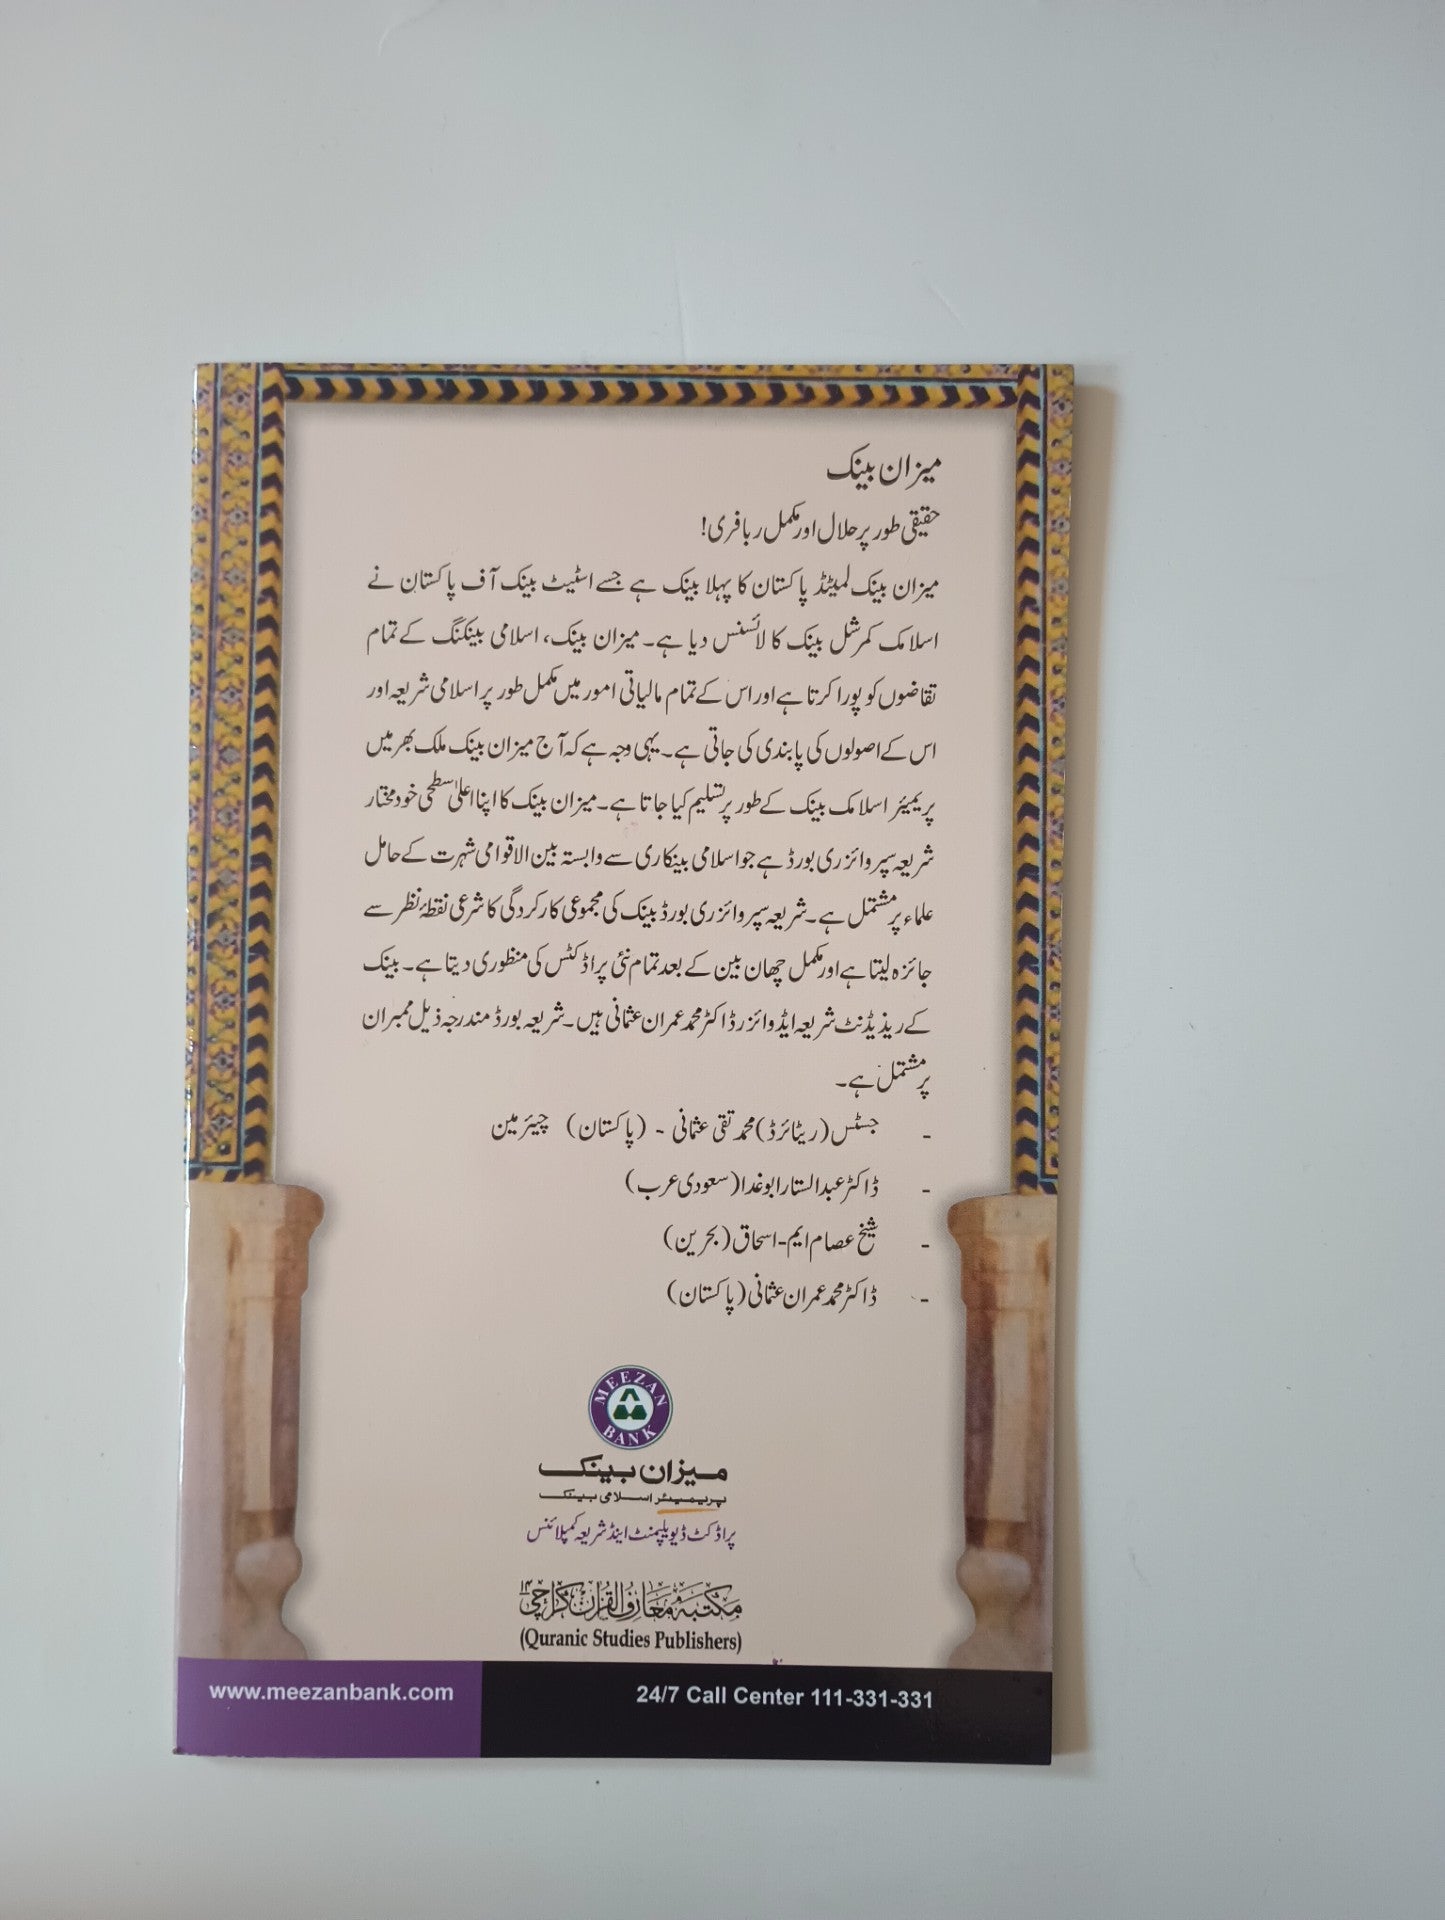 میزان بینک
حقیقی طور پر حلال اور مکمل ربا فری!
میزان بینک لمیٹڈ پاکستان کا پہلا بینک ہے جسے اسٹیٹ بینک آف پاکستان نے
اسلامک کمرشل بینک کا لائسنس دیا ہے۔ میزان بینک، اسلامی بینکنگ کے تمام
تقاضوں کو پورا کرتا ہے اور اس کے تمام مالیاتی امور میں مکمل طور پر اسلامی شریعہ اور
اس کے اصولوں کی پابندی کی جاتی ہے۔ یہی وجہ ہے کہ آج میزان بینک ملک بھر میں
پریمیئر اسلامک بینک کے طور پر تسلیم کیا جاتا ہے۔ میزان بینک کا اپنا اعلیٰ سطحی خود مختار
شریعہ سپروائزری بورڈ ہے جو اسلامی بینکاری سے وابستہ بین الاقوامی شہرت کے حامل
علماء پر مشتمل ہے۔ شریعہ سپروائزری بورڈ بینک کی مجموعی کارکردگی کا شرعی نقطۂ نظر سے
جائزہ لیتا ہے اور مکمل چھان بین کے بعد تمام نئی پراڈکٹس کی منظوری دیتا ہے۔ بینک
کے ریذیڈنٹ شریعہ ایڈوائزر ڈاکٹر محمد عمران عثمانی ہیں۔ شریعہ بورڈ مندرجہ ذیل ممبران
پر مشتمل ہے۔
- جسٹس (ریٹائرڈ) محمد تقی عثمانی - (پاکستان) چیئرمین
- ڈاکٹر عبدالستار ابوغدا (سعودی عرب)
- شیخ عصام ایم-اسحاق (بحرین)
- ڈاکٹر محمد عمران عثمانی (پاکستان)
MEEZAN BANK
میزان بینک
پریمیئر اسلامی بینک
پراڈکٹ ڈیویلپمنٹ اینڈ شریعہ کمپلائنس
مکتبہ معارف القرآن کراچی ۱۴
(Quranic Studies Publishers)
www.meezanbank.com 24/7 Call Center 111-331-331